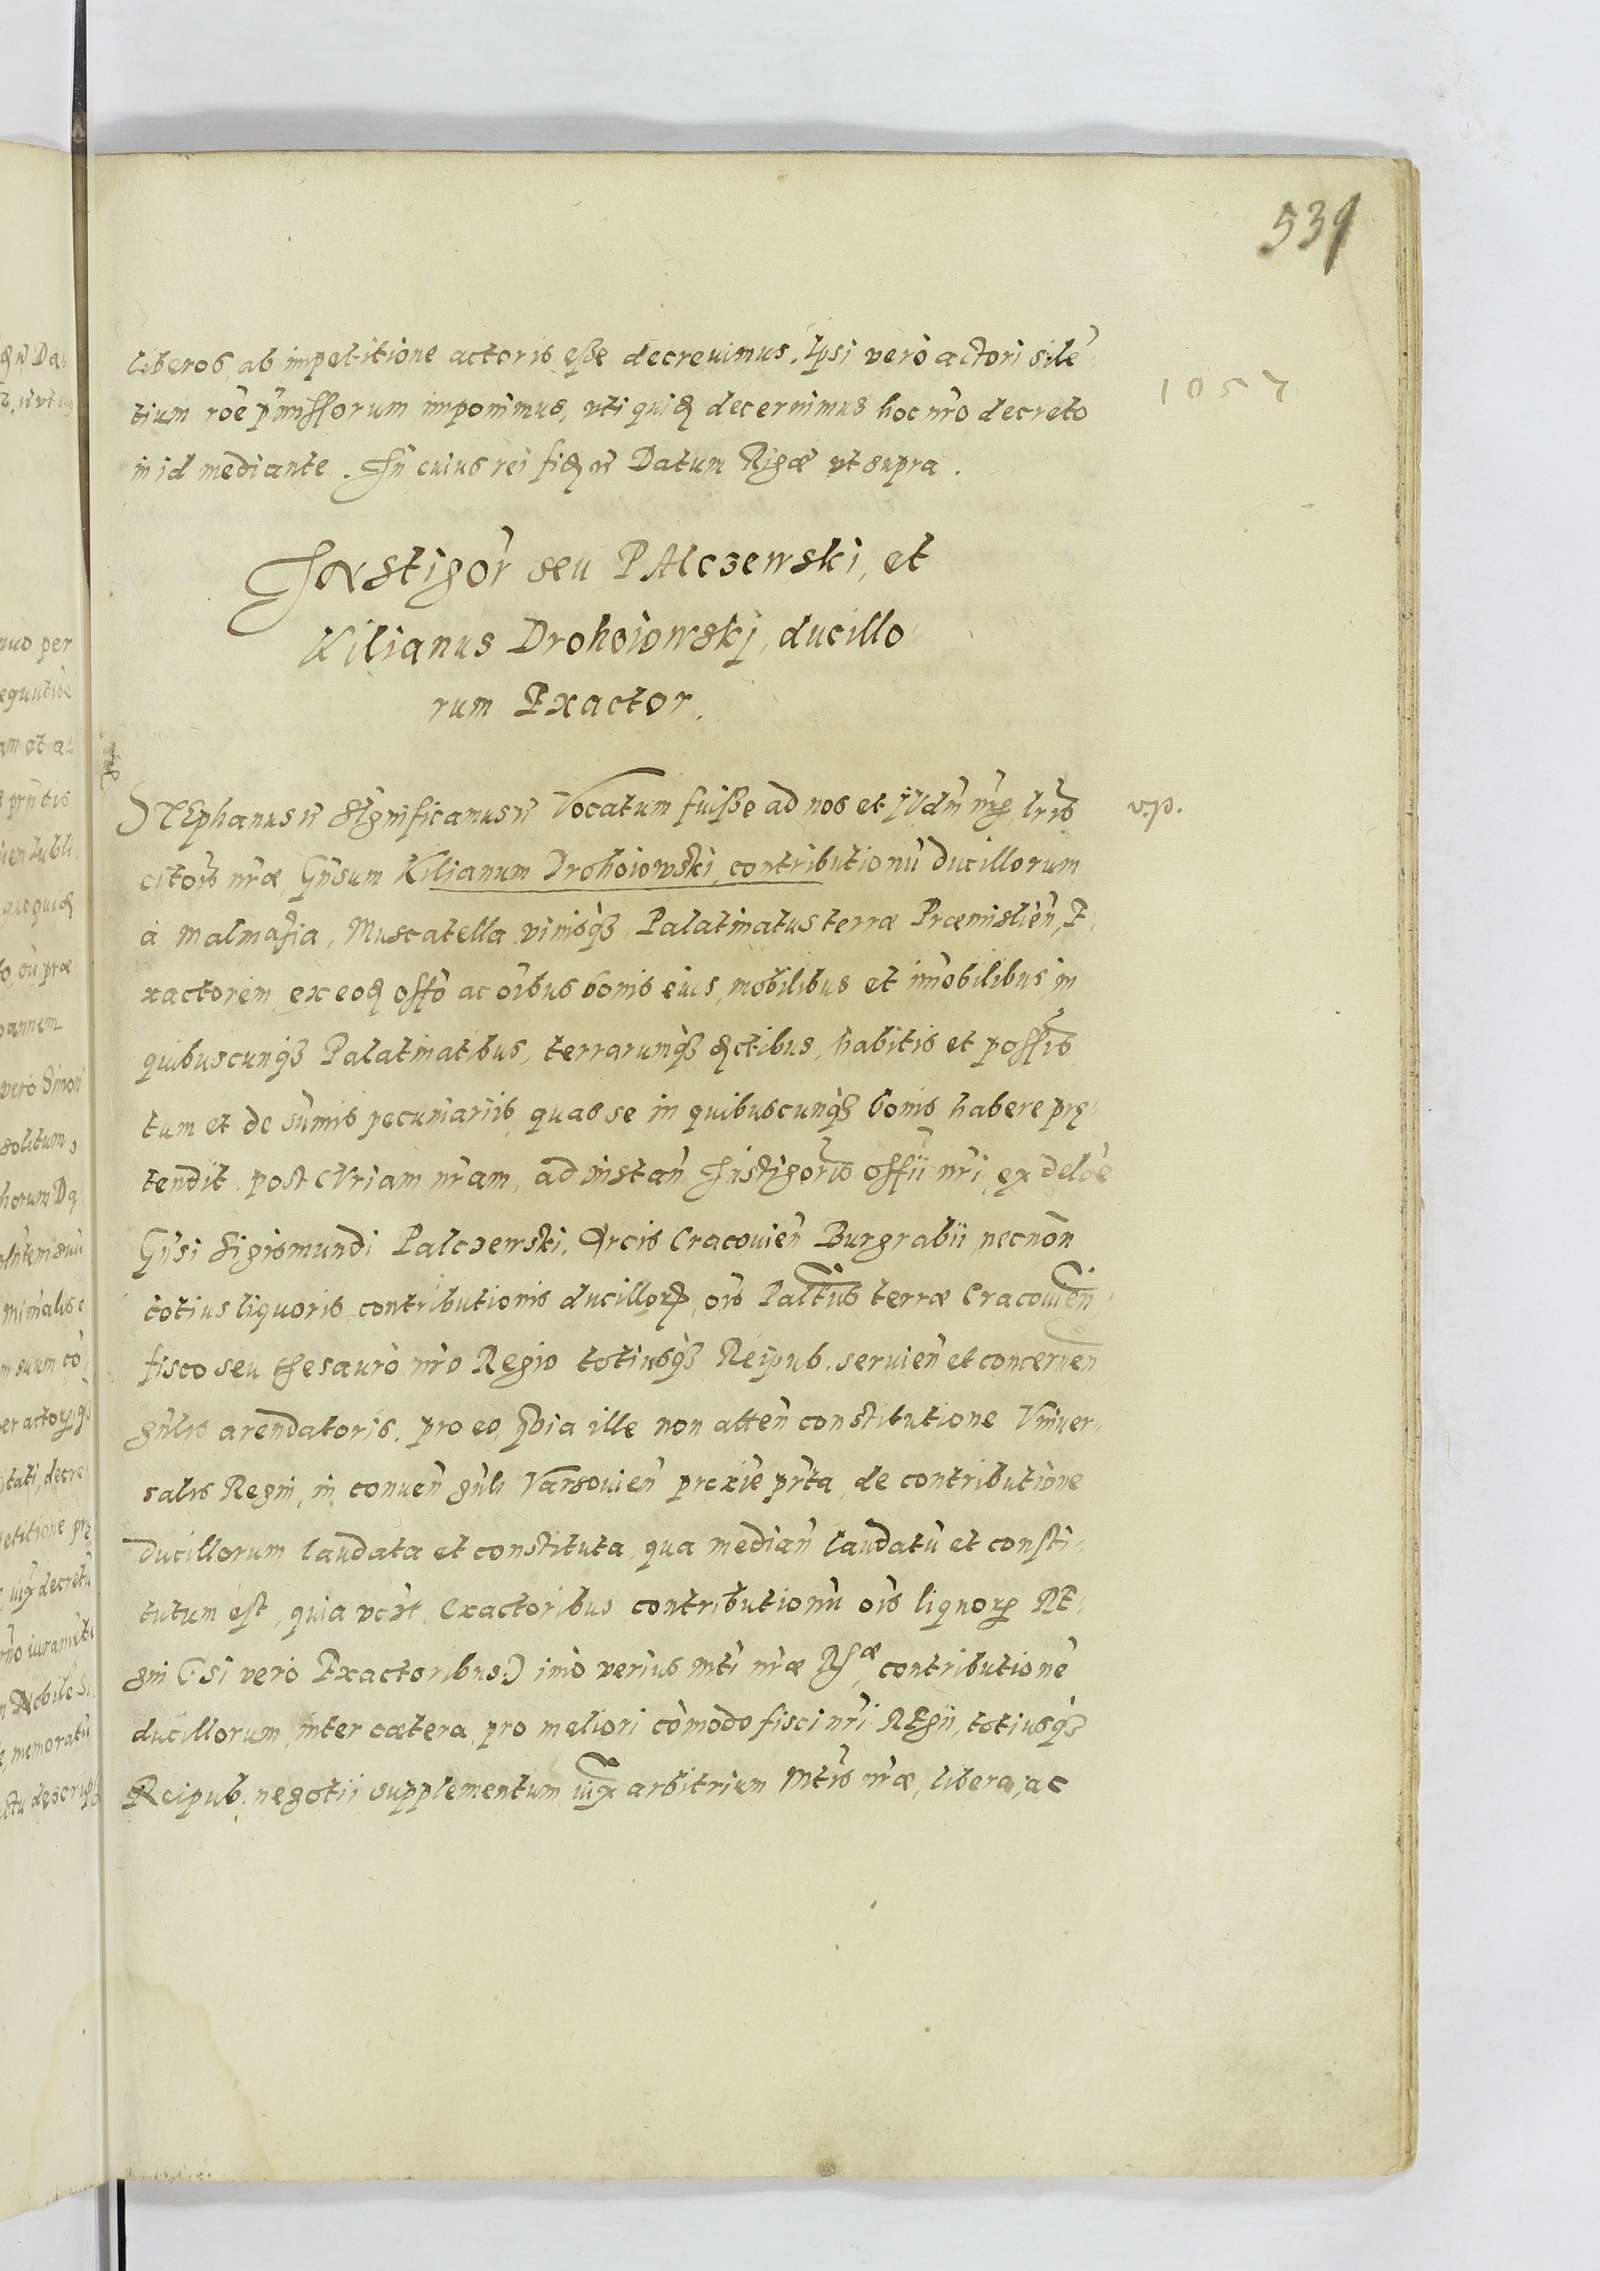 539
liberos, ab impetitione actoris eße decrevimus. Ipsi verò actori silē-
1057
tium rōe p̄missorum imponimus, vti quiđ decernimus hoc nr̄o decreto
in id mediante. In cuius rei fidē Datum Rigæ vt supra.
INstigōr seu PAlczewski, et
Kilianus Drohoiowskj, ducillo-
rum Exactor.
STEphanus Significamus Vocatum fuiße ad nos et JVdm̄ nr̄m, lrīs v.p.
citorīs nr̄æ, Gn̄sum Kilianum Drohoiowski, contributionū ducillorum
à Malmatia, Muscatella vinisq3, Palatinatus terræ Præmislien̄, E-
xactorem, ex eođ offō ac oībus bonis eius, mobilibus et im̄obilibus in
quibuscunq3 Palatinatibus, terrarumq3 đctibus, habitis et possīs
tum et de sum̄is pecuniariis, quas se in quibuscunq3 bonis habere prę-
tendit. post CVriam nr̄am, ad instan̄ Jnstigoris offii nr̄i, ex deloē
Gn̄si Sigismundi Palczewski, Arcis Cracouien̄ Burgrabii, necnōn
totius liquoris contributionis ducillorꝝ, oīs Paltūs terræ Cracouien̄,
fisco seu thesauro nr̄o Regio totiusq3 Reipub. seruien̄ et concernen̄
gn̄lis arendatoris. pro eo, qvia ille non atten̄ constitutione Vniver-
salis Regni, in conuen̄ gn̄li Varsouien̄ proxīe pr̄ta, de contributione
ducillorum laudata et constituta, qua median̄ laudatū et consti-
tutum est, quia Exactoribus contributionū oīs liquorꝝ RE-
gni (: si verò Exactoribus :) imò verius Mti nr̄æ Rgæ, contributionē
ducillorum, inter cætera, pro meliori còmodo fisci nr̄i REgii, totiusq3
Reipub. negotii supplementum, iux̄ arbitrium Mtīs nr̄æ, libera, ac